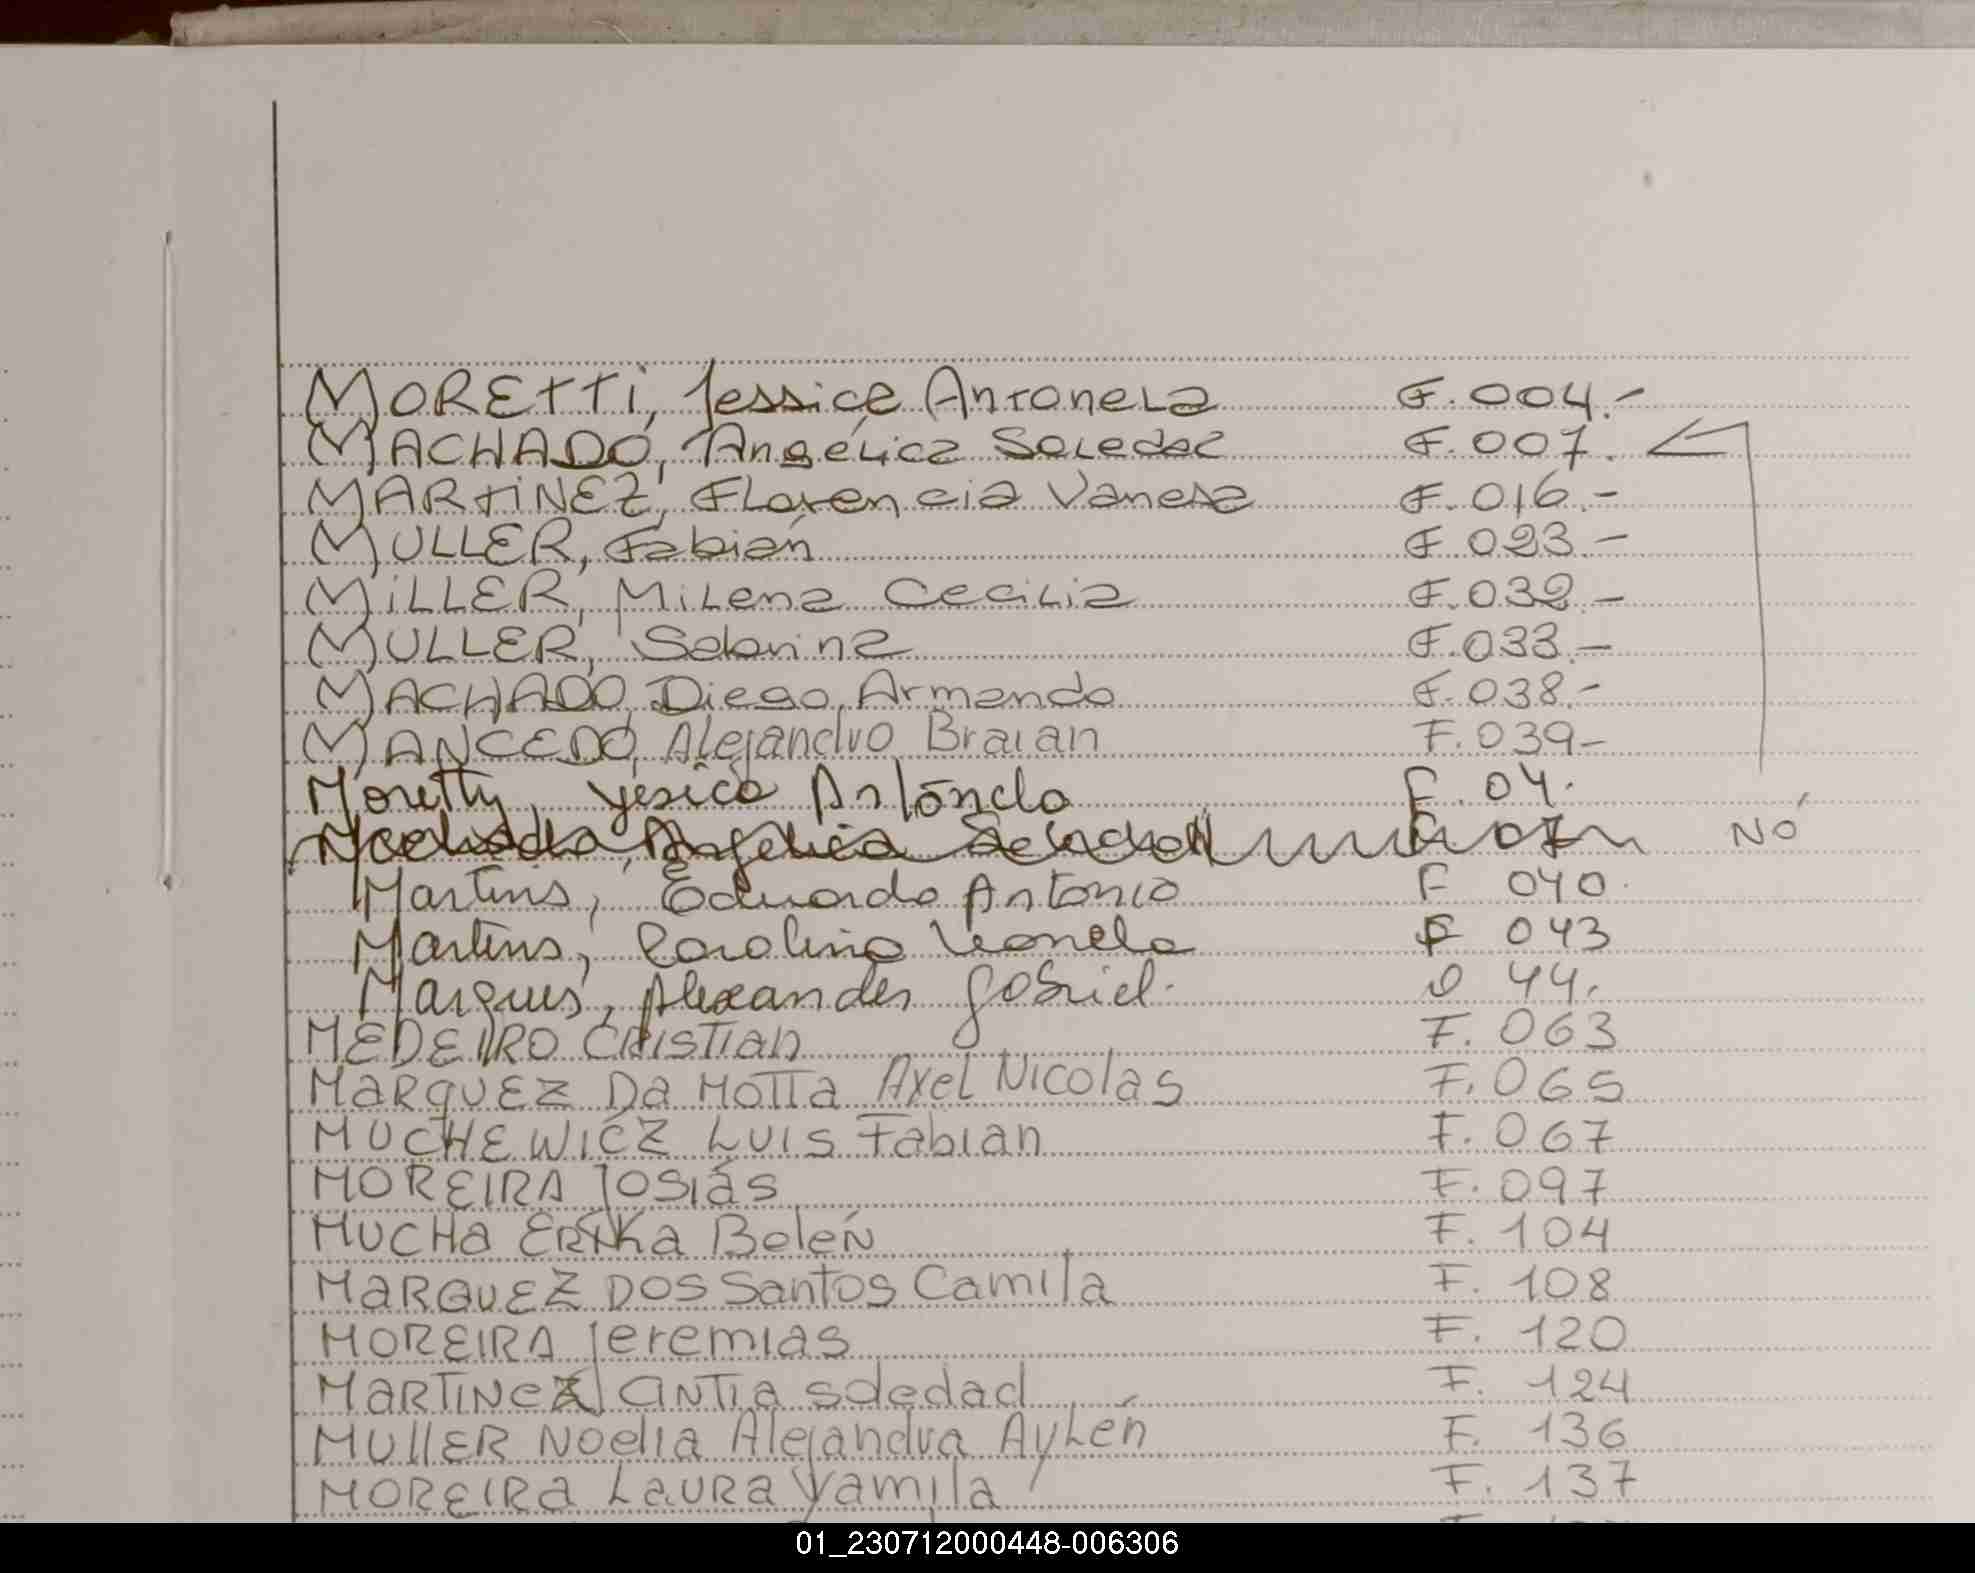 MORETTI, Jessica Antonela F. 004.-
MACHADO, Angélica Soledad F. 007.
MARTINEZ, Florencia Vanesa F. 016.-
MULLER, Fabián F. 023.-
MILLER, Milena Cecilia F. 032.-
MULLER, Sabrina F. 033.-
MACHADO, Diego Armando F. 038.-
MANCEDO, Alejandro Braian F. 039-
Moretty, Yesica Antonela F. 04.
Machado, Angelica Soledad F. 07 NO
Martins, Eduardo Antonio F 040.
Martins, Carolina Leonela F 043
Marques, Alexander Gabriel. 44.
MEDEIRO CRISTIAN F. 063
MARQUEZ Da MOTTA Axel Nicolas F. 065
MUCHEWICZ LUIS Fabian F. 067
MOREIRA Josiás F. 097
MUCHA ERIKA Belén F. 104
MARQUEZ DOS Santos Camila F. 108
MOREIRA Jeremias F. 120
MARTINEZ CINTIA Soledad F. 124
MULLER Noelia Alejandra Aylén F. 136
MOREIRA LAURA Yamila F. 137
01_230712000448-006306